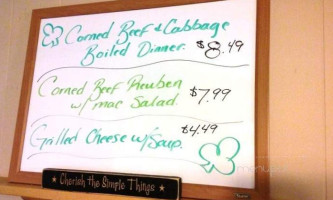 Corned Beef & Cabbage
Boiled Dinner. $8.49
Corned Beef Reuben
w/ mac Salad. $7.99
Grilled Cheese w/ Soup. $4.49
★ Cherish the Simple Things ★